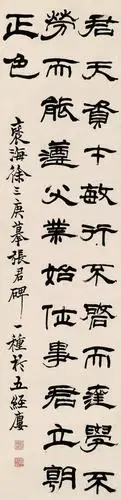 君天資才敏行不啓而達學不
勞而能遵父業始位事君立朝
正色
褎海徐三庚摹張君碑一種於五經廔